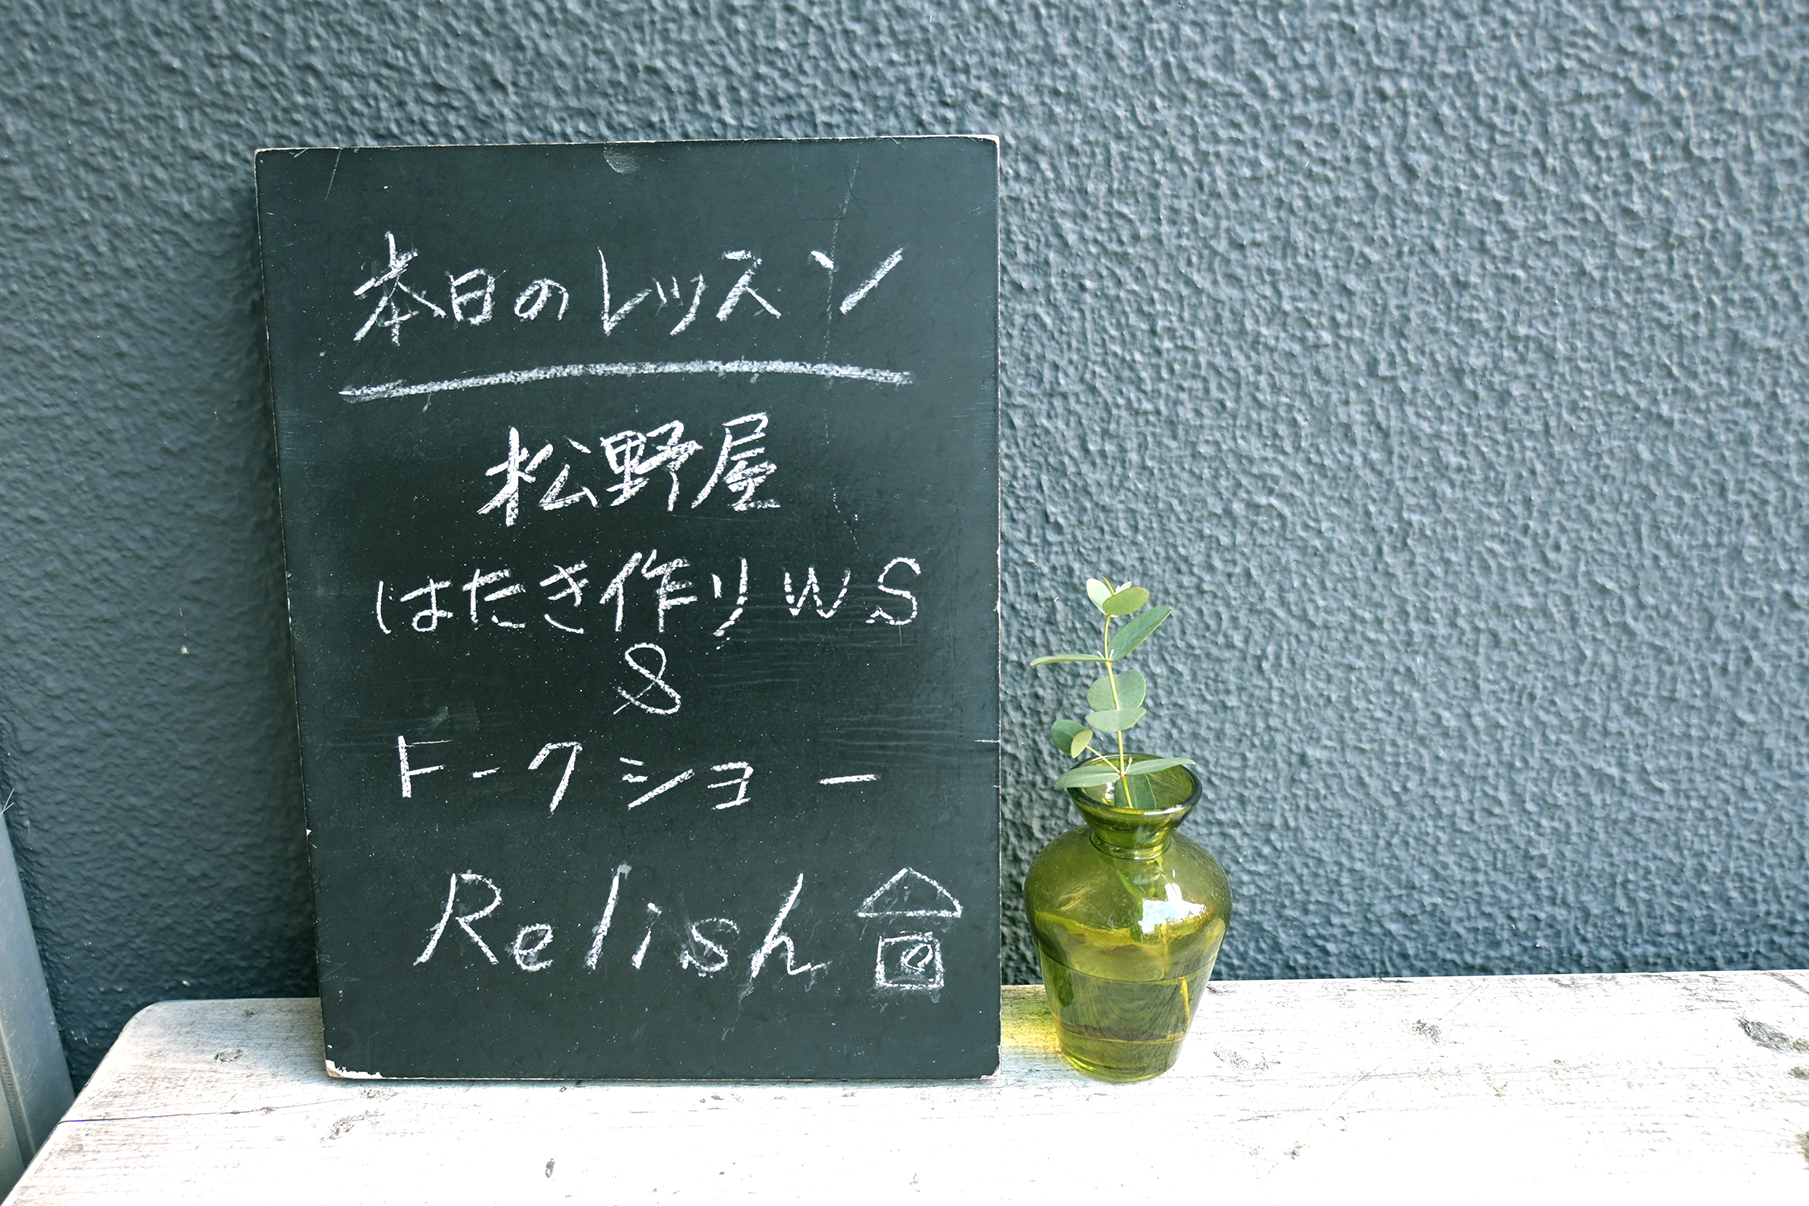 本日のレッスン
松野屋
はたき作りWS
&
トークショー
Relish